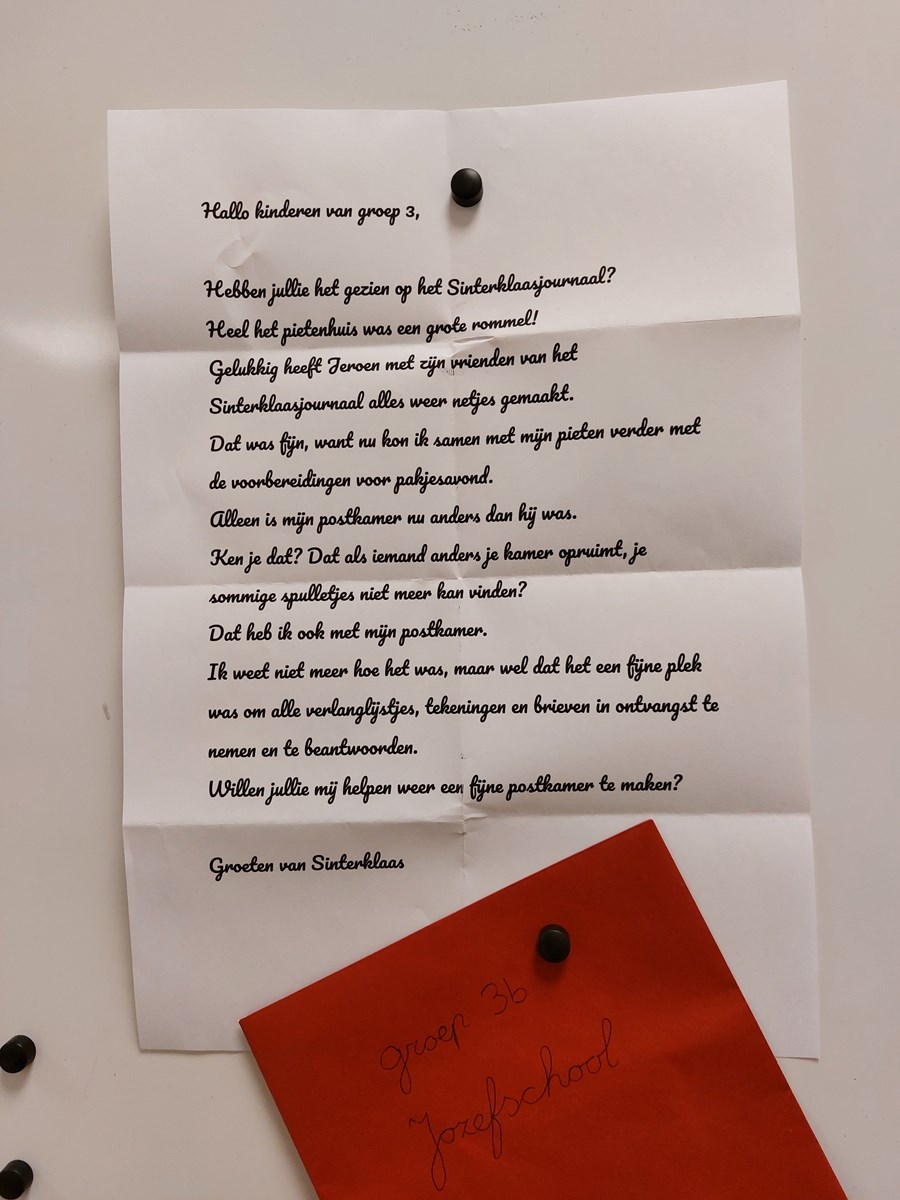 Hallo kinderen van groep 3,
Hebben jullie het gezien op het Sinterklaasjournaal?
Heel het pietenhuis was een grote rommel!
Gelukkig heeft Jeroen met zijn vrienden van het
Sinterklaasjournaal alles weer netjes gemaakt.
Dat was fijn, want nu kon ik samen met mijn pieten verder met
de voorbereidingen voor pakjesavond.
Alleen is mijn postkamer nu anders dan hij was.
Ken je dat? Dat als iemand anders je kamer opruimt, je
sommige spulletjes niet meer kan vinden?
Dat heb ik ook met mijn postkamer.
Ik weet niet meer hoe het was, maar wel dat het een fijne plek
was om alle verlanglijstjes, tekeningen en brieven in ontvangst te
nemen en te beantwoorden.
Willen jullie mij helpen weer een fijne postkamer te maken?
Groeten van Sinterklaas
groep 3b
Jozefschool